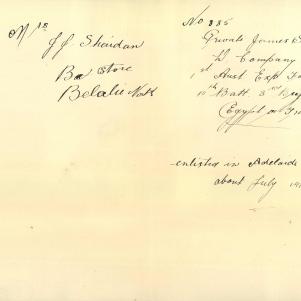 Mrs
J J Sheidan
Box Store
Belalie Nth
No 335
Private James S
D Company
1st Aust Exp Fo
10th Batt 3rd Brig
Egypt or
enlisted in Adelaide
about July 191